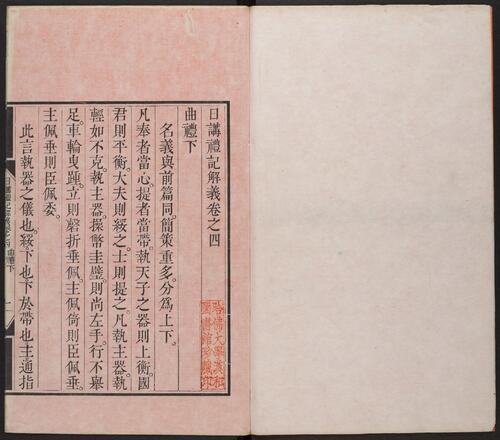 日講禮記解義卷之四
曲禮下
名義與前篇同。簡策重多。分為上下。
凡奉者當心。提者當帶。執天子之器則上衡。國
君則平衡。大夫則綏之。士則提之。凡執主器。執
輕如不克。執主器。操幣圭璧。則尚左手。行不舉
足。車輪曳踵。立則磬折垂佩。主佩倚則臣佩垂。
主佩垂則臣佩委。
此言執器之儀也。綏。下也。下於帶也。主。通指
哈佛大學漢和
圖書館珍藏印